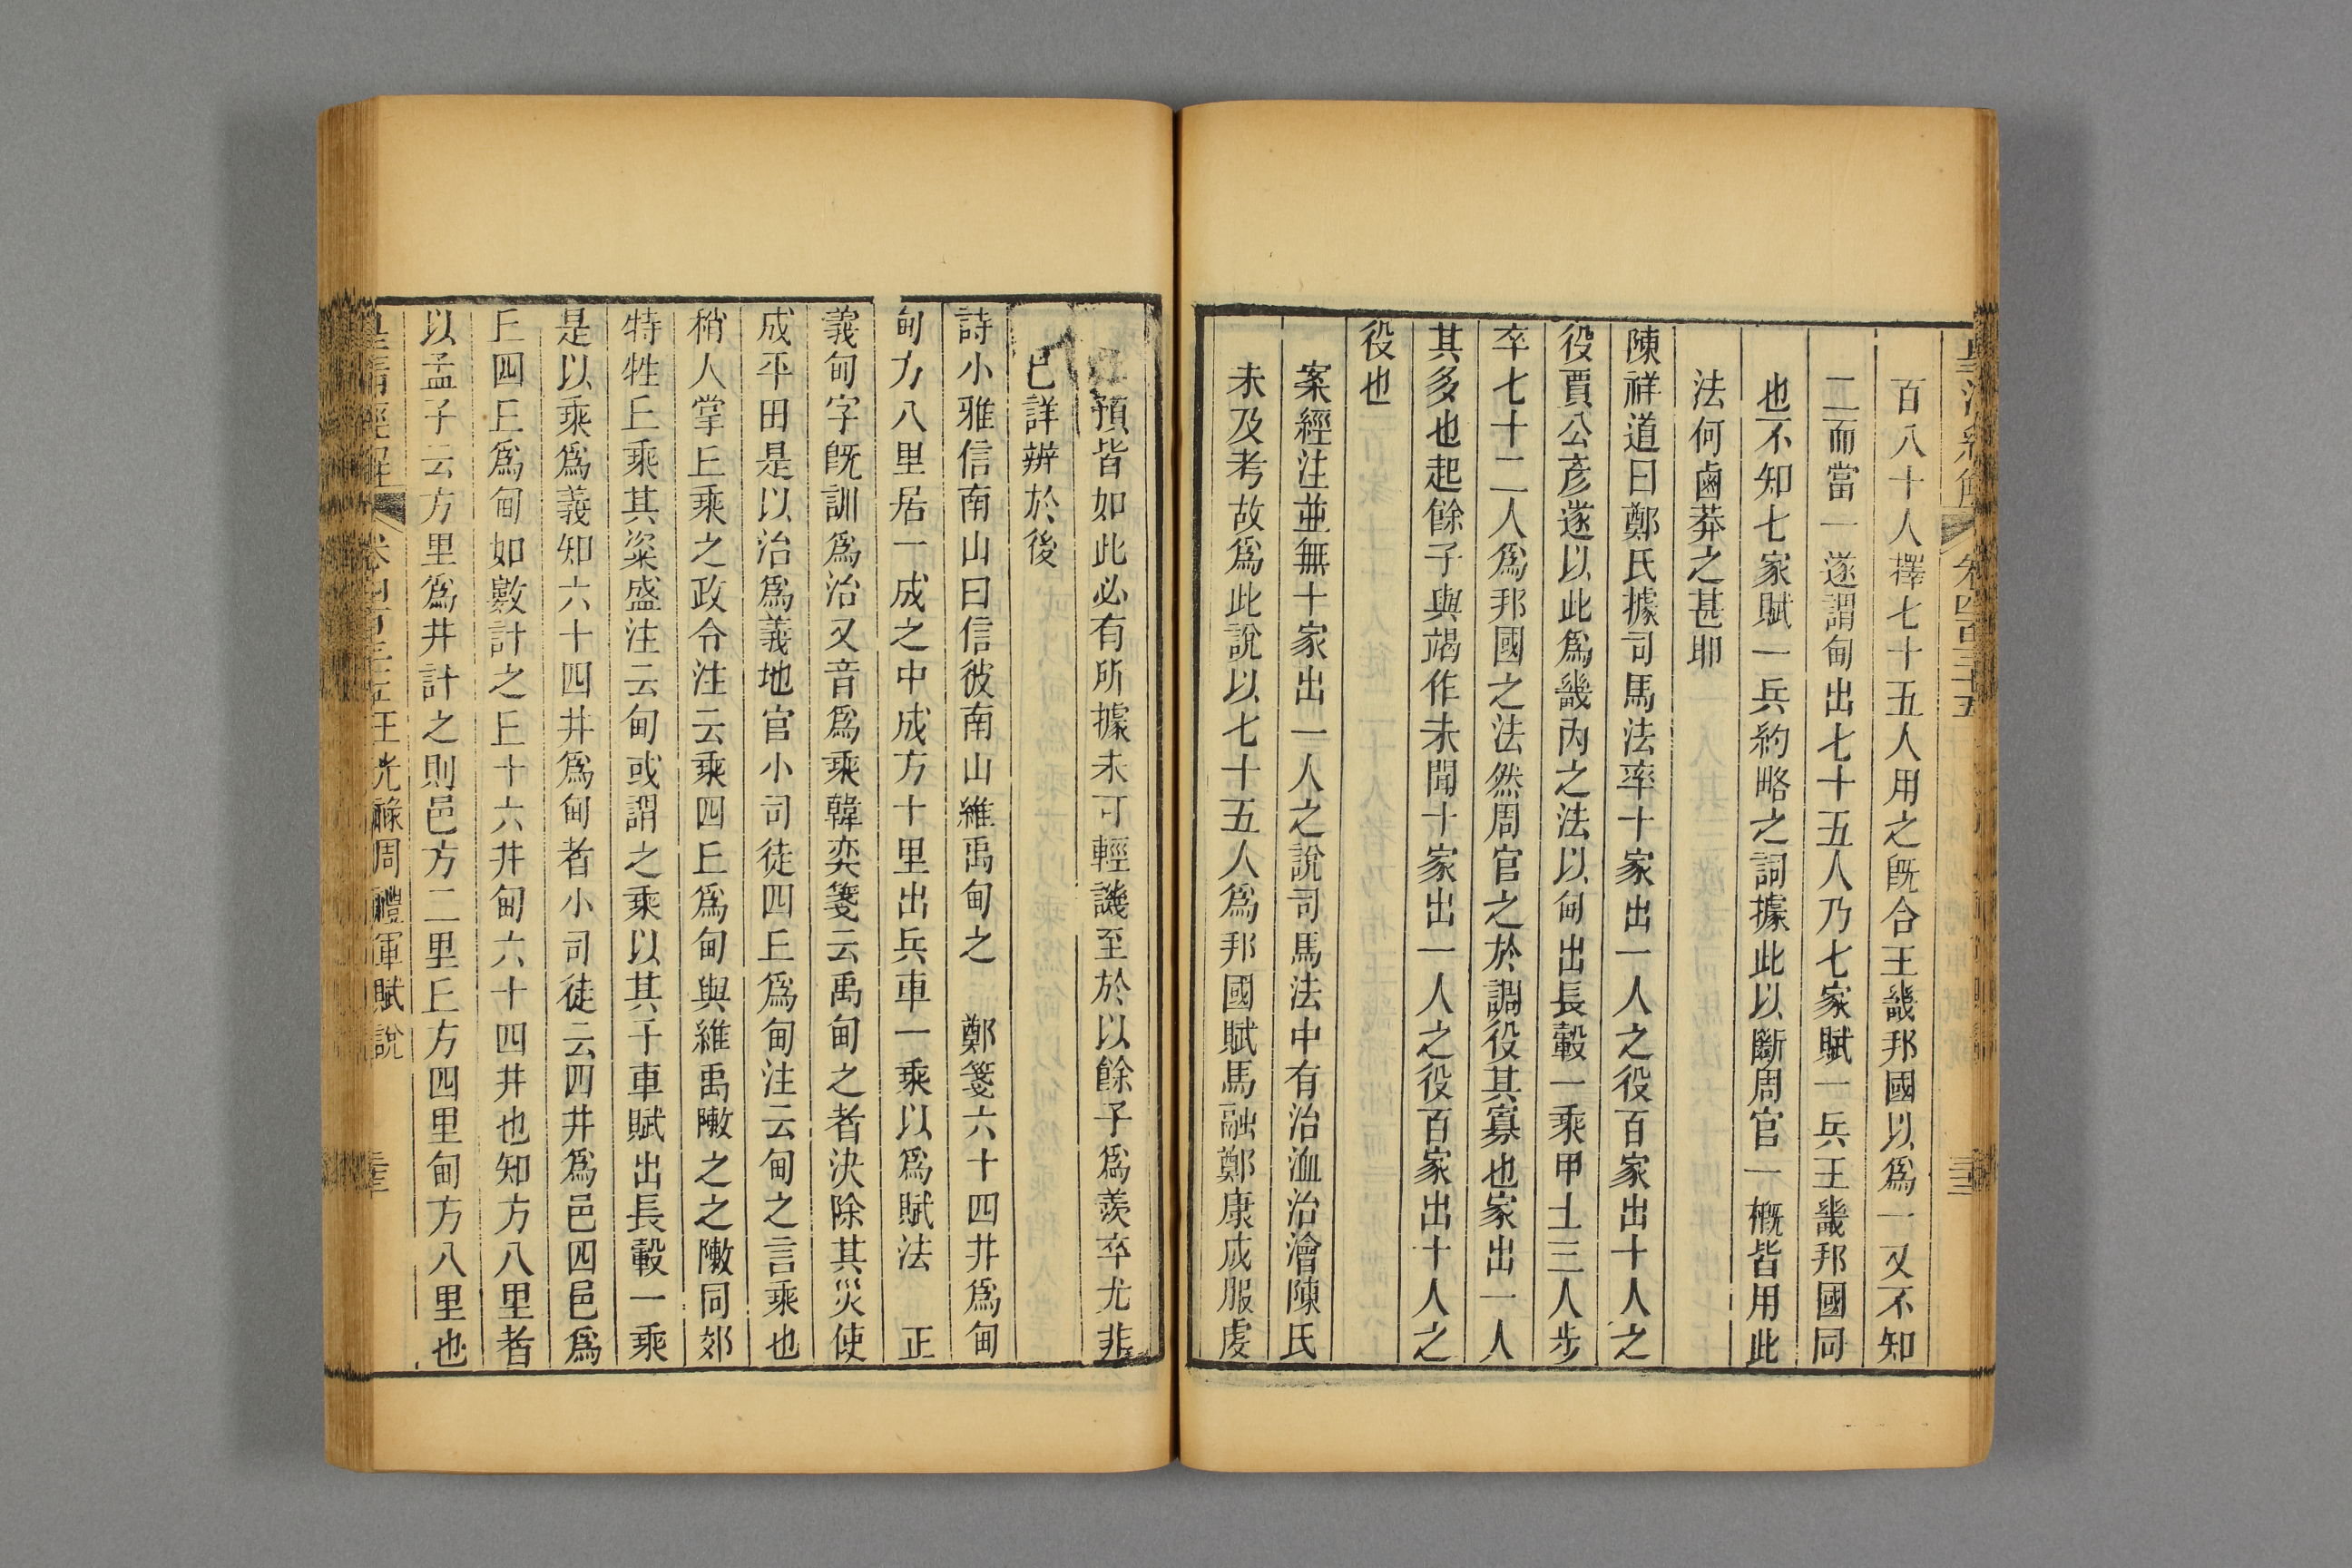 百八十人擇七十五人用之旣合王畿邦國以爲一又不知
二而當一遂謂甸出七十五人乃七家賦一兵王畿邦國同
也不知七家賦一兵約略之詞據此以斷周官一概皆用此
法何鹵莽之甚耶
陳祥道曰鄭氏據司馬法率十家出一人之役百家出十人之
役賈公彥遂以此爲畿內之法以甸出長轂一乘甲士三人步
卒七十二人爲邦國之法然周官之於調役其寡也家出一人
其多也起餘子與竭作未聞十家出一人之役百家出十人之
役也
案經注並無十家出一人之說司馬法中有治洫治澮陳氏
未及考故爲此說以七十五人爲邦國賦馬融鄭康成服虔
預皆如此必有所據未可輕譏至於以餘子爲羨卒尤非
已詳辨於後
詩小雅信南山曰信彼南山維禹甸之 鄭箋六十四井爲甸
甸方八里居一成之中成方十里出兵車一乘以爲賦法 正
義甸字旣訓爲治又音爲乘韓奕箋云禹甸之者決除其災使
成平田是以治爲義地官小司徒四丘爲甸注云甸之言乘也
稍人掌丘乘之政令注云乘四丘爲甸與維禹敶之之敶同郊
特牲丘乘其粢盛注云甸或謂之乘以其于車賦出長轂一乘
是以乘爲義知六十四井爲甸者小司徒云四井爲邑四邑爲
丘四丘爲甸如數計之丘十六井甸六十四井也知方八里者
以孟子云方里爲井計之則邑方二里丘方四里甸方八里也
皇清經解 卷四百三十五 王光祿周禮軍賦說